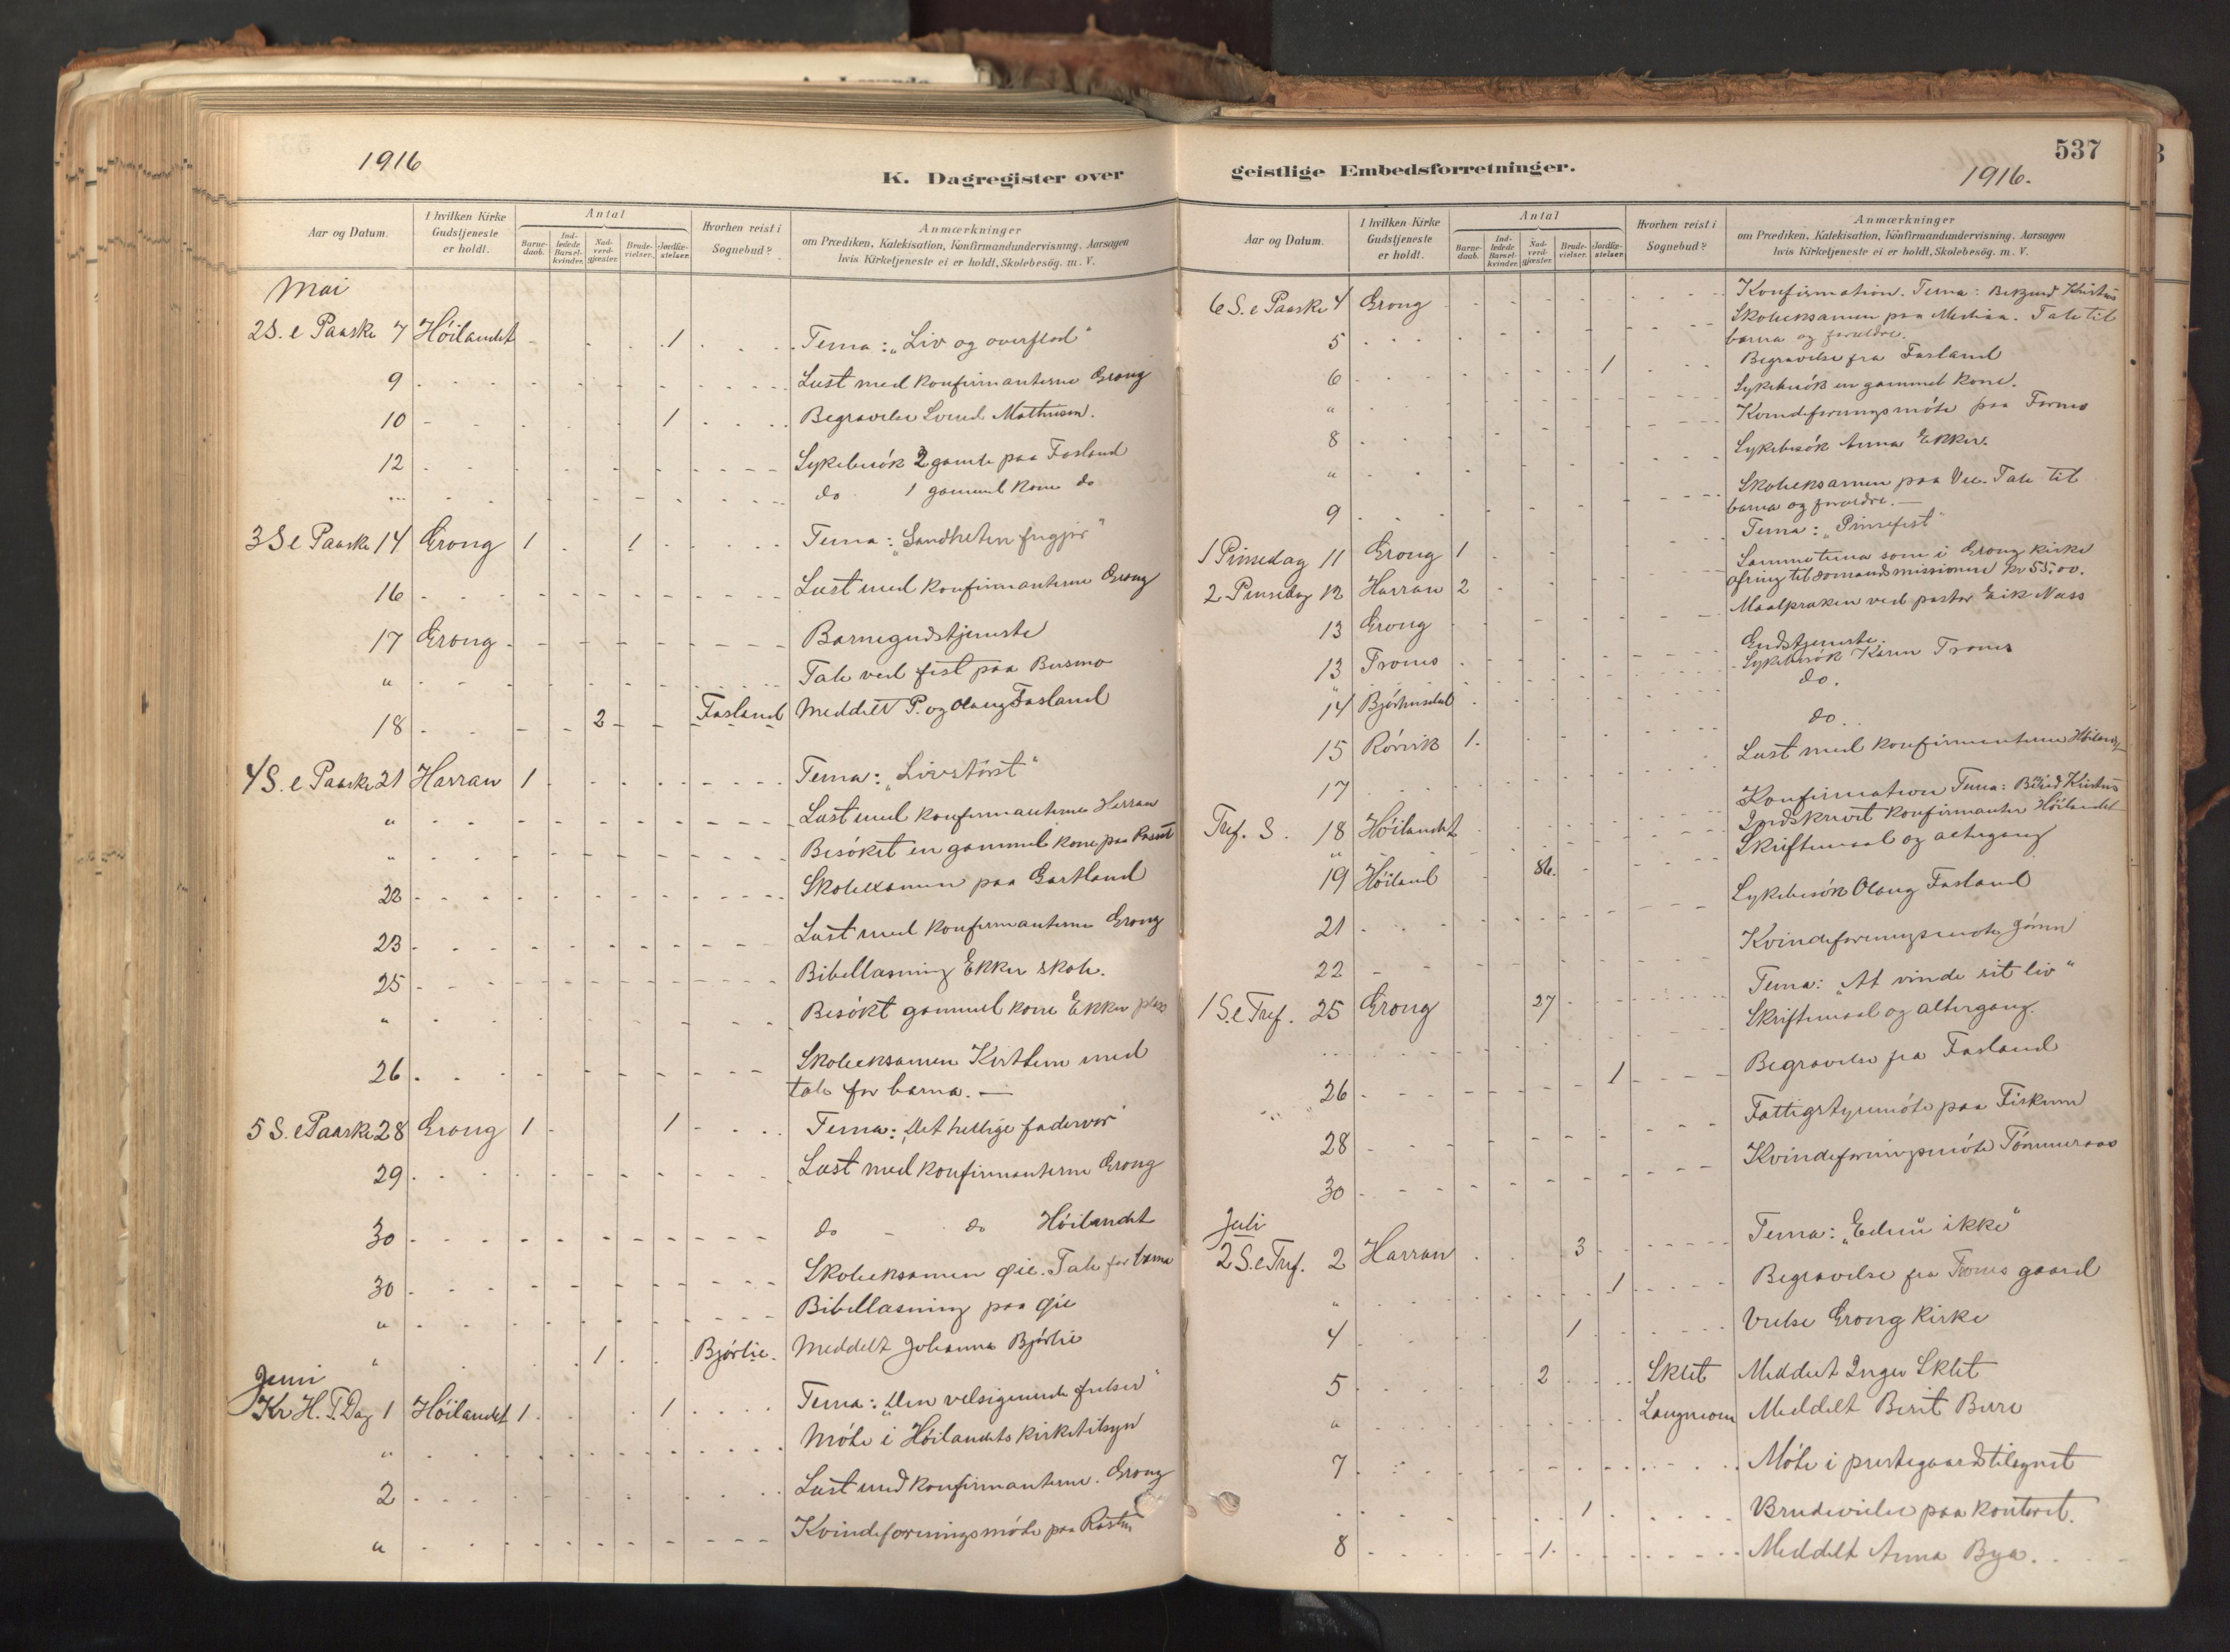 1916
K. Dagregister over
Aar og Datum.
I hvilken Kirke Gudstjeneste er holdt.
Antal
Barnedaab.
Indledede Barselkvinder.
Nadverdgjæster.
Brudevielser.
Jordfæstelser.
Hvorhen reist i Sognebud?
Anmærkninger
om Prædiken, Katekisation, Konfirmandundervisning, Aarsagen
hvis Kirketjeneste ei er holdt, Skolebesøg. m. V.
Mai
2 S. e Paaske 7 Høilandet 1 Tema: "Liv og overflod"
9 Læst med konfirmanterne Grong
10 1 Begravelse Svend Mathisen.
12 Sykebesøk 2 gamle paa Fosland
do 1 gammel kone do
3 S e Paaske 14 Grong 1 1 Tema: "Sandheten frigjør"
16 Læst med konfirmanterne Grong
17 Grong Barnegudstjeneste
" Tale ved fest paa
18 2 Fosland Meddelt P. og Olaug Fosland
4 S. e Paaske 21 Harran 1 Tema: "Livstørst"
" Læst med konfirmanterne Harran
" Besøkt en gammel kone paa
22 Skoleexamen paa Gartland
23 Læst med konfirmanterne Grong
25 Bibellæsning Ekker skole.
" Besøkt gammel kone Ekker plass
26 Skoleeksamen med
tale for barna. —
5 S. e Paaske 28 Grong 1 1 Tema: "Det hellige fadervor"
29 Læst med konfirmanterne Grong
30 do - do Høilandet
30 Skoleeksamen Øie. Tale for barna
" Bibellæsning paa Øie
" 1 Bjørlie. Meddelt Johanna Bjørlie
Juni
Kr H. F. Dag 1 Høilandet 1 1 Tema: "Den velsignende frelser"
" Møte i Høilandets kirketilsyn
2 Læst med konfirmanterne. Grong
" Kvindeforeningsmøte paa
537
geistlige Embedsforretninger.
1916.
Aar og Datum.
I hvilken Kirke Gudstjeneste er holdt.
Antal
Barnedaab.
Indledede Barselkvinder.
Nadverdgjæster.
Brudevielser.
Jordfæstelser.
Hvorhen reist i Sognebud?
Anmærkninger
om Prædiken, Katekisation, Konfirmandundervisning, Aarsagen
hvis Kirketjeneste ei er holdt, Skolebesøg. m. V.
6 S. e Paaske 4 Grong Konfirmation. Tema: Kristus
5 Skoleeksamen paa Mediaa. Tale til
barna og forældre.
6 1 Begravelse fra Fosland
" Sykebesøk en gammel kone.
8 Kvindeforeningsmøte paa Formo
" Sykebesøk Anna Ekker.
9 Skoleeksamen paa Vie. Tale til
barna og forældre. —
1 Pinsedag 11 Grong 1 Tema: "Pinsefest"
2 Pinsedag 12 Harran 2 Samme tema som i Grong kirke
ofring til kr 55.00.
13 Grong Maalpræken ved pastor Eik Næss
13 Tromo Gudstjeneste.
Sykebesøk Karen
" 14 Bjørhusdal do.
15 Rørvik 1. do.
17 Læst med konfirmanterne Høiland
Tref. S. 18 Høilandet Konfirmation Tema: Kristus
" Indskrevet konfirmanter Høilandet
19 Høiland 86. Skriftemaal og altergang
21 Sykebesøk Olaug Fosland
22 Kvindeforeningsmøte
1 S. e Tref. 25 Grong 27 Tema: "At vinde sit liv"
Skriftemaal og altergang.
26 1 Begravelse fra Fosland
28 Fattigstyremøte paa Fiskum
30 Kvindeforeningsmøte Tømmeraas
Juli
2 S. e Tref. 2 Harran 3 Tema: "Endnu ikke"
" 1 Begravelse fra gaard
4 1 Vielse Grong kirke
5 2 Sklet Meddelt Inger Sklet
" Meddelt Berit
7 Møte i prestegaardstilsynet
1 Brudevielse paa kontoret.
8 1 Meddelt Anna Bya.